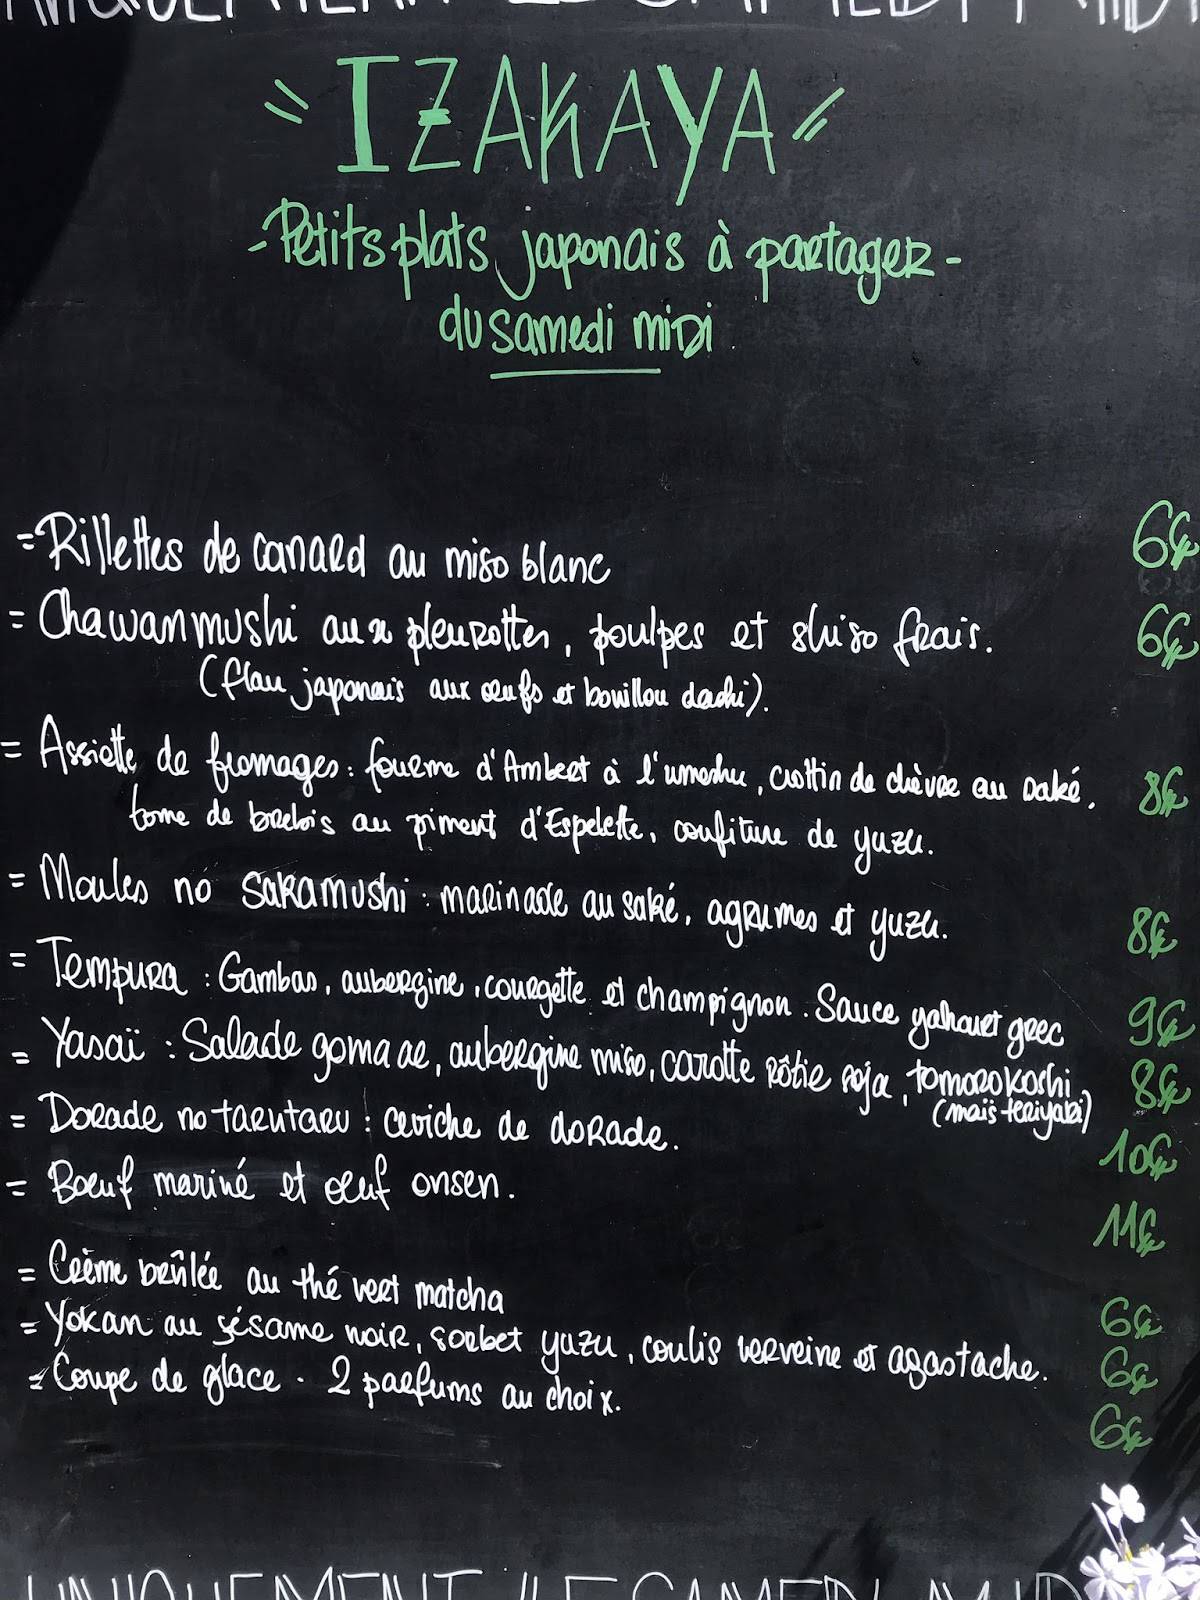 "IZAKAYA"
- Petits plats japonais à partager -
du samedi midi
= Rillettes de canard au miso blanc 6€
= Chawanmushi aux pleurottes, poulpes et shiso frais. 6€
(flan japonais aux œufs et bouillon dashi).
= Assiette de fromages : fourme d'Ambert à l'umeshu, crottin de chèvre au saké, 8€
tome de brebis au piment d'Espelette, confiture de yuzu.
= Moules no sakamushi : marinade au saké, agrumes et yuzu. 8€
= Tempura : Gambas, aubergine, courgette et champignon. Sauce yahourt grec 9€
= Yasaï : Salade goma ae, aubergine miso, carotte rôtie soja, tomorokoshi 8€
(maïs teriyaki)
= Dorade no tarutaru : ceviche de dorade. 10€
= Boeuf mariné et œuf onsen. 11€
= Crème brûlée au thé vert matcha 6€
= Yokan au sésame noir, sorbet yuzu, coulis verveine et agastache. 6€
= Coupe de glace. 2 parfums au choix. 6€
UNIQUEMENT LE SAMEDI MIDI